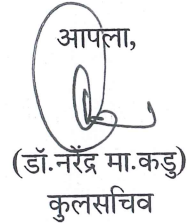 आपला,
(डॉ.नरेंद्र मा.कडु)
कुलसचिव